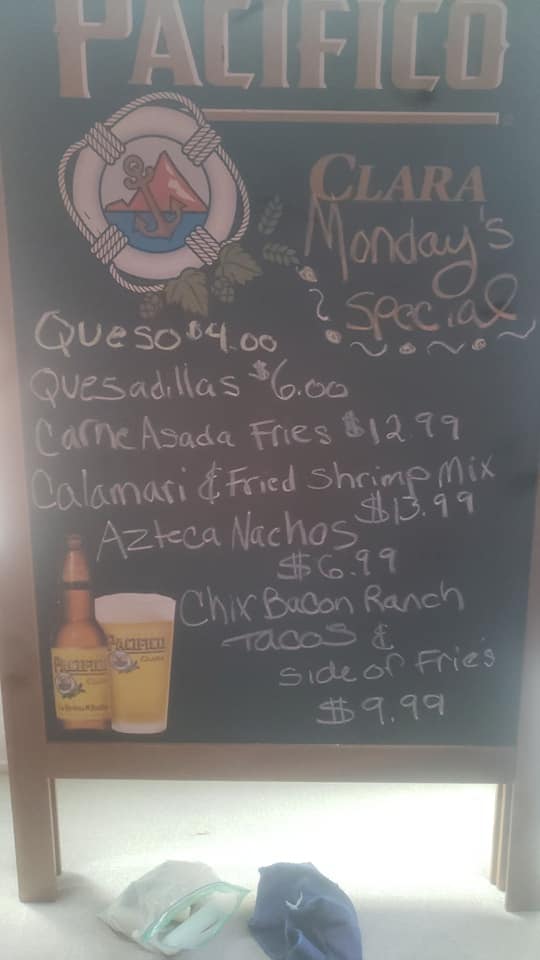 PACIFICO
CLARA
Monday's
Special
Queso $4.00
Quesadillas $6.00
Carne Asada Fries $12.99
Calamari & Fried Shrimp Mix
$13.99
Azteca Nachos
$6.99
Chix Bacon Ranch
Tacos &
Side of Frie's
$9.99
PACIFICO
Clara
PACIFICO
Clara